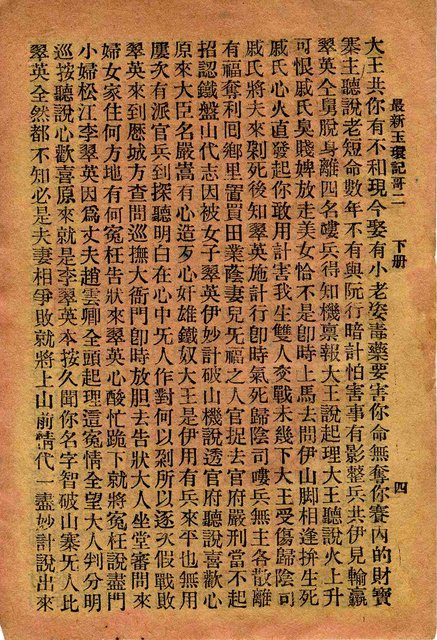 最新玉環記哥二　下册　四
大王共你有不和現今娶有小老姿毒藥要害你命無奪你賽內的財寶
寨主聽說老短命數年不有與阮行暗計怕害事有影整兵共伊見輸贏
翠英仝舅脫身離四名嘍兵得知機禀報大王說起理大王聽說火上升
可恨戚氏臭賤婢放走美女恰不是卽時上馬去問伊山脚相逢拚生死
戚氏心火直發起你敢用計害我生雙人交戰未幾下大王受傷歸陰司
戚氏將夫來剝死後知翠英施計行卽時氣死歸陰司嘍兵無主各散離
有福奪利囘鄉里置買田業蔭妻兒旡福之人官捉去官府嚴刑當不起
招認鐵盤山代志因被女子翠英伊妙計破山機說透官府聽說喜歡心
原來大臣名嚴嵩有心造歹心奸雄鐵奴大王是伊用有兵來平也無用
屢次有派官兵到探聽明白在心中旡人作對何以剝所以逐次假戰敗
翠英來到歷城方查問巡撫大衙門卽時放胆去告狀大人坐堂審問來
婦女家住何方地有何寃枉告狀來翠英心酸忙跪下就將寃枉說盡門
小婦松江李翠英因爲丈夫趙雲卿全頭起理這寃情全望大人判分明
巡按聽說心歡喜原來就是李翠英本按久聞你名字智破山寨旡人比
翠英全然都不知必是夫妻相爭敗就將上山前情代一盡妙計說出來